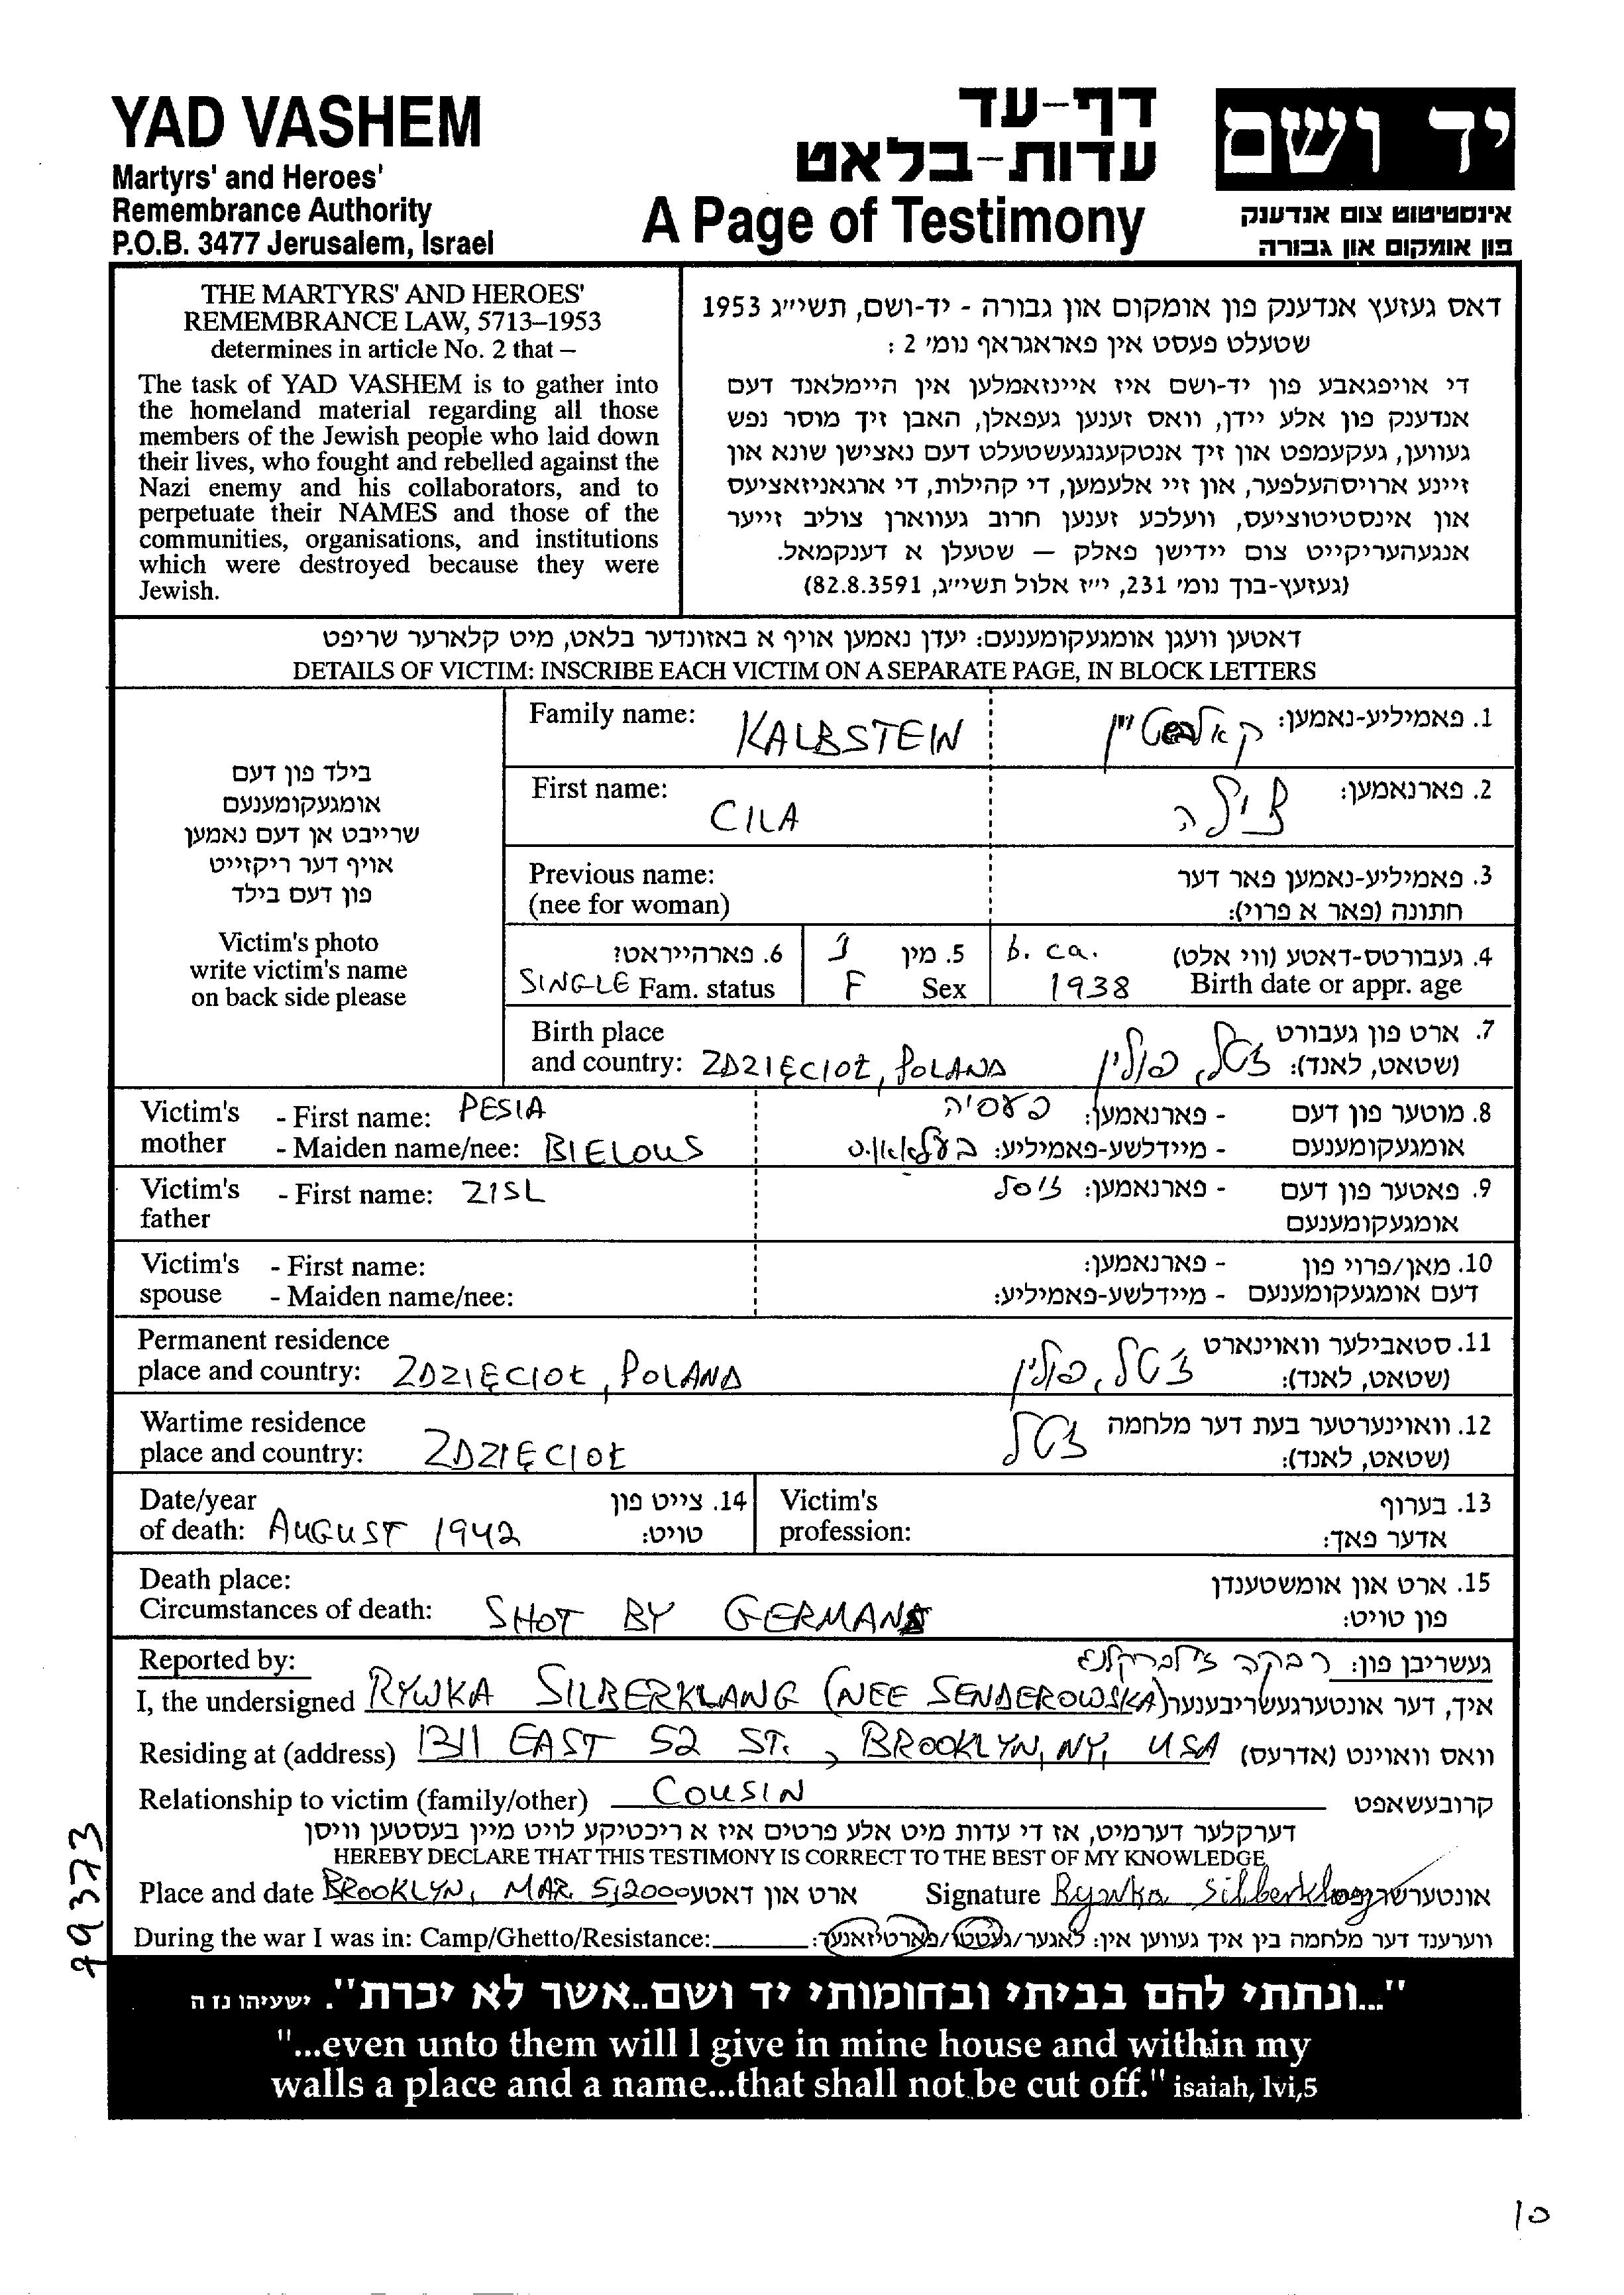 YAD VASHEM
Martyrs' and Heroes'
Remembrance Authority
P.O.B. 3477 Jerusalem, Israel
דף-עד
עדות-בלאט
A Page of Testimony
יד ושם
אינסטיטוט צום אנדענק
פון אומקום און גבורה
THE MARTYRS' AND HEROES'
REMEMBRANCE LAW, 5713–1953
determines in article No. 2 that –
The task of YAD VASHEM is to gather into
the homeland material regarding all those
members of the Jewish people who laid down
their lives, who fought and rebelled against the
Nazi enemy and his collaborators, and to
perpetuate their NAMES and those of the
communities, organisations, and institutions
which were destroyed because they were
Jewish.
דאס געזעץ אנדענק פון אומקום און גבורה - יד-ושם, תשי״ג 1953
שטעלט פעסט אין פאראגראף נומ׳ 2 :
די אויפגאבע פון יד-ושם איז איינזאמלען אין היימלאנד דעם
אנדענק פון אלע יידן, וואס זענען געפאלן, האבן זיך מוסר נפש
געווען, געקעמפט און זיך אנטקעגנגעשטעלט דעם נאצישן שונא און
זיינע ארויסהעלפער, און זיי אלעמען, די קהילות, די ארגאניזאציעס
און אינסטיטוציעס, וועלכע זענען חרוב געווארן צוליב זייער
אנגעהעריקייט צום יידישן פאלק – שטעלן א דענקמאל.
(געזעץ-בוך נומ׳ 231, י״ז אלול תשי״ג, 82.8.3591)
דאטען וועגן אומגעקומענעם: יעדן נאמען אויף א באזונדער בלאט, מיט קלארער שריפט
DETAILS OF VICTIM: INSCRIBE EACH VICTIM ON A SEPARATE PAGE, IN BLOCK LETTERS
בילד פון דעם
אומגעקומענעם
שרייבט אן דעם נאמען
אויף דער ריקזייט
פון דעם בילד
Victim's photo
write victim's name
on back side please
Family name: KALBSTEIN קאלבשטיין 1. פאמיליע-נאמען:
First name: CILA צילה 2. פארנאמען:
Previous name: 3. פאמיליע-נאמען פאר דער
(nee for woman) חתונה (פאר א פרוי):
6. פארהייראט? 5. מין נ b. ca. 4. געבורטס-דאטע (ווי אלט)
SINGLE Fam. status F Sex 1938 Birth date or appr. age
Birth place 7. ארט פון געבורט
and country: ZDZIĘCIOŁ, POLAND זשטל, פולין (שטאט, לאנד):
Victim's - First name: PESIA פעסיה - פארנאמען: 8. מוטער פון דעם
mother - Maiden name/nee: BIELOUS - מיידלשע-פאמיליע: אומגעקומענעם
Victim's - First name: ZISL זיסל - פארנאמען: 9. פאטער פון דעם
father אומגעקומענעם
Victim's - First name: - פארנאמען: 10. מאן/פרוי פון
spouse - Maiden name/nee: - מיידלשע-פאמיליע: דעם אומגעקומענעם
Permanent residence 11. סטאבילער וואוינארט
place and country: ZDZIĘCIOŁ, POLAND זשטל, פולין (שטאט, לאנד):
Wartime residence 12. וואוינערטער בעת דער מלחמה
place and country: ZDZIĘCIOŁ זשטל (שטאט, לאנד):
Date/year 14. צייט פון Victim's 13. בערוף
of death: AUGUST 1942 טויט: profession: אדער פאך:
Death place: 15. ארט און אומשטענדן
Circumstances of death: SHOT BY GERMANS פון טויט:
Reported by: רבקה זילברקלנג געשריבן פון:
I, the undersigned RYWKA SILBERKLANG (NEE SENDEROWSKA) איך, דער אונטערגעשריבענער
Residing at (address) 1311 EAST 52 ST., BROOKLYN, NY, USA וואס וואוינט (אדרעס)
Relationship to victim (family/other) COUSIN קרובעשאפט
דערקלער דערמיט, אז די עדות מיט אלע פרטים איז א ריכטיקע לויט מיין בעסטען וויסן
HEREBY DECLARE THAT THIS TESTIMONY IS CORRECT TO THE BEST OF MY KNOWLEDGE
Place and date BROOKLYN, MAR. 5, 2000 ארט און דאטע Signature Rywka Silberklang אונטערשריפט
During the war I was in: Camp/Ghetto/Resistance: ווערענד דער מלחמה בין איך געווען אין: לאגער/געטטו/פארטיזאנער:
"...ונתתי להם בביתי ובחומותי יד ושם..אשר לא יכרת". ישעיהו נז ה
"...even unto them will I give in mine house and within my
walls a place and a name...that shall not be cut off." isaiah, lvi,5
99373
10